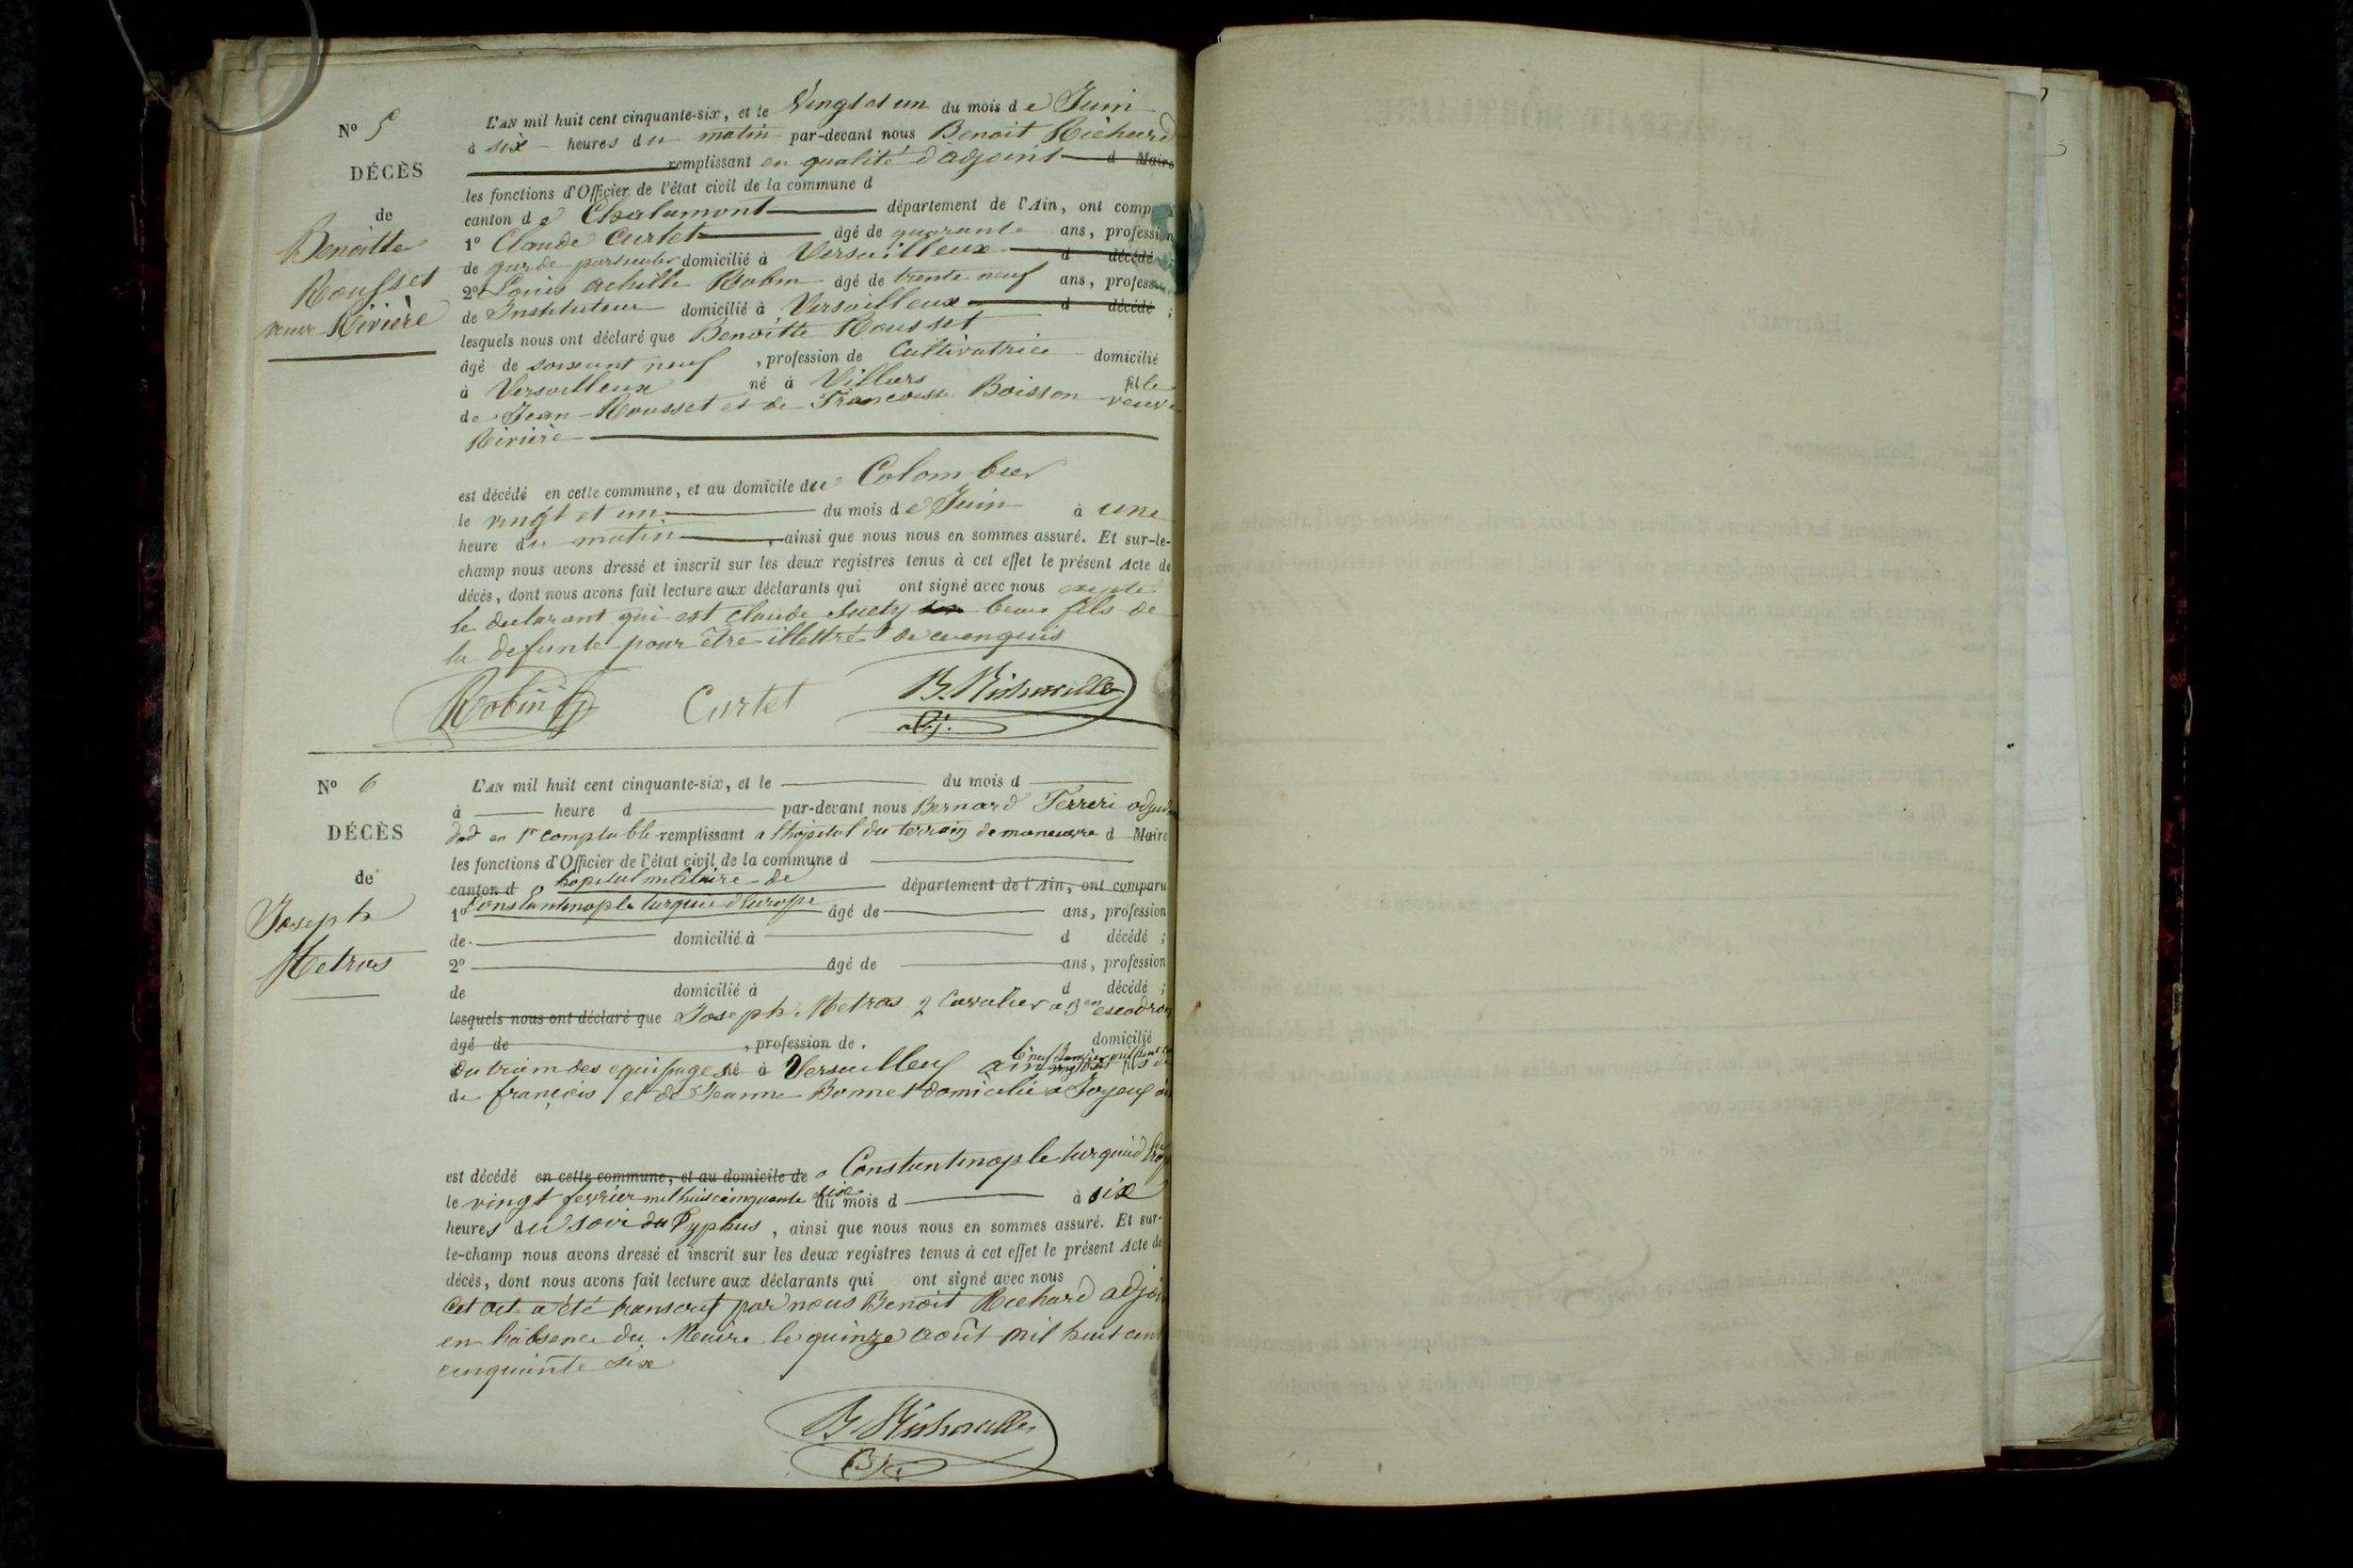 N° 5
DÉCÈS
de
Benoitte
Rousset
veuve Rivière
L'AN mil huit cent cinquante-six, et le Vingt et un du mois de Juin
à six heures du matin par-devant nous Benoit Richard
remplissant en qualité d'adjoint d Maire
les fonctions d'Officier de l'état civil de la commune d
canton de Chalamont département de l'Ain, ont comp
1° Claude Curtet âgé de quarante ans, profession
de garde particulier domicilié à Versailleux d décédé
2° Louis achille Robin âgé de trente neuf ans, profess
de Instituteur domicilié à Versailleux d décédé ;
lesquels nous ont déclaré que Benoitte Rousset
âgé de soixant neuf , profession de Cultivatrice domicilié
à Versailleux né à Villars fille
de Jean Rousset et de Francoise Boisson veuve
Rivière
est décédé en cette commune, et au domicile du Colombier
le vingt et un du mois de Juin à une
heure du matin , ainsi que nous nous en sommes assuré. Et sur-le-
champ nous avons dressé et inscrit sur les deux registres tenus à cet effet le présent Acte de
décès, dont nous avons fait lecture aux déclarants qui ont signé avec nous
le declarant qui est Claude beau fils de
la defunte pour être illettré de ce enquis
Robin Curtet B. Richard
adj.
N° 6
DÉCÈS
de
Joseph
Metras
L'AN mil huit cent cinquante-six, et le du mois d
à heure d par-devant nous Bernard Ferreri adjud
en 1er comptable remplissant a l'hopital du terrain de manœuvre d Maire
les fonctions d'Officier de l'état civil de la commune d
canton d hopital militaire de département de l'Ain, ont comparu
1° Constantinople turquie d'Europe âgé de ans, profession
de domicilié à d décédé ;
2° âgé de ans, profession
de domicilié à d décédé ;
lesquels nous ont déclaré que Joseph Metras 2 Cavalier a 3em escadron
âgé de , profession de domicilié
du train des equipages né à Versailleux ain le neuf Janvier mil huit fils de
de françois et de Jeanne Bonnet domicilié a Joyeux
est décédé en cette commune, et au domicile de a Constantinople turquie d
le vingt fevrier mil huit cinquante six du mois d à six
heures du soir du Typhus , ainsi que nous nous en sommes assuré. Et sur-
le-champ nous avons dressé et inscrit sur les deux registres tenus à cet effet le présent Acte de
décès, dont nous avons fait lecture aux déclarants qui ont signé avec nous
Cet acte a été transcrit par nous Benoit Richard adjoin
en l'absence du Maire le quinze août mil huit cent
cinquante six
B. Richard